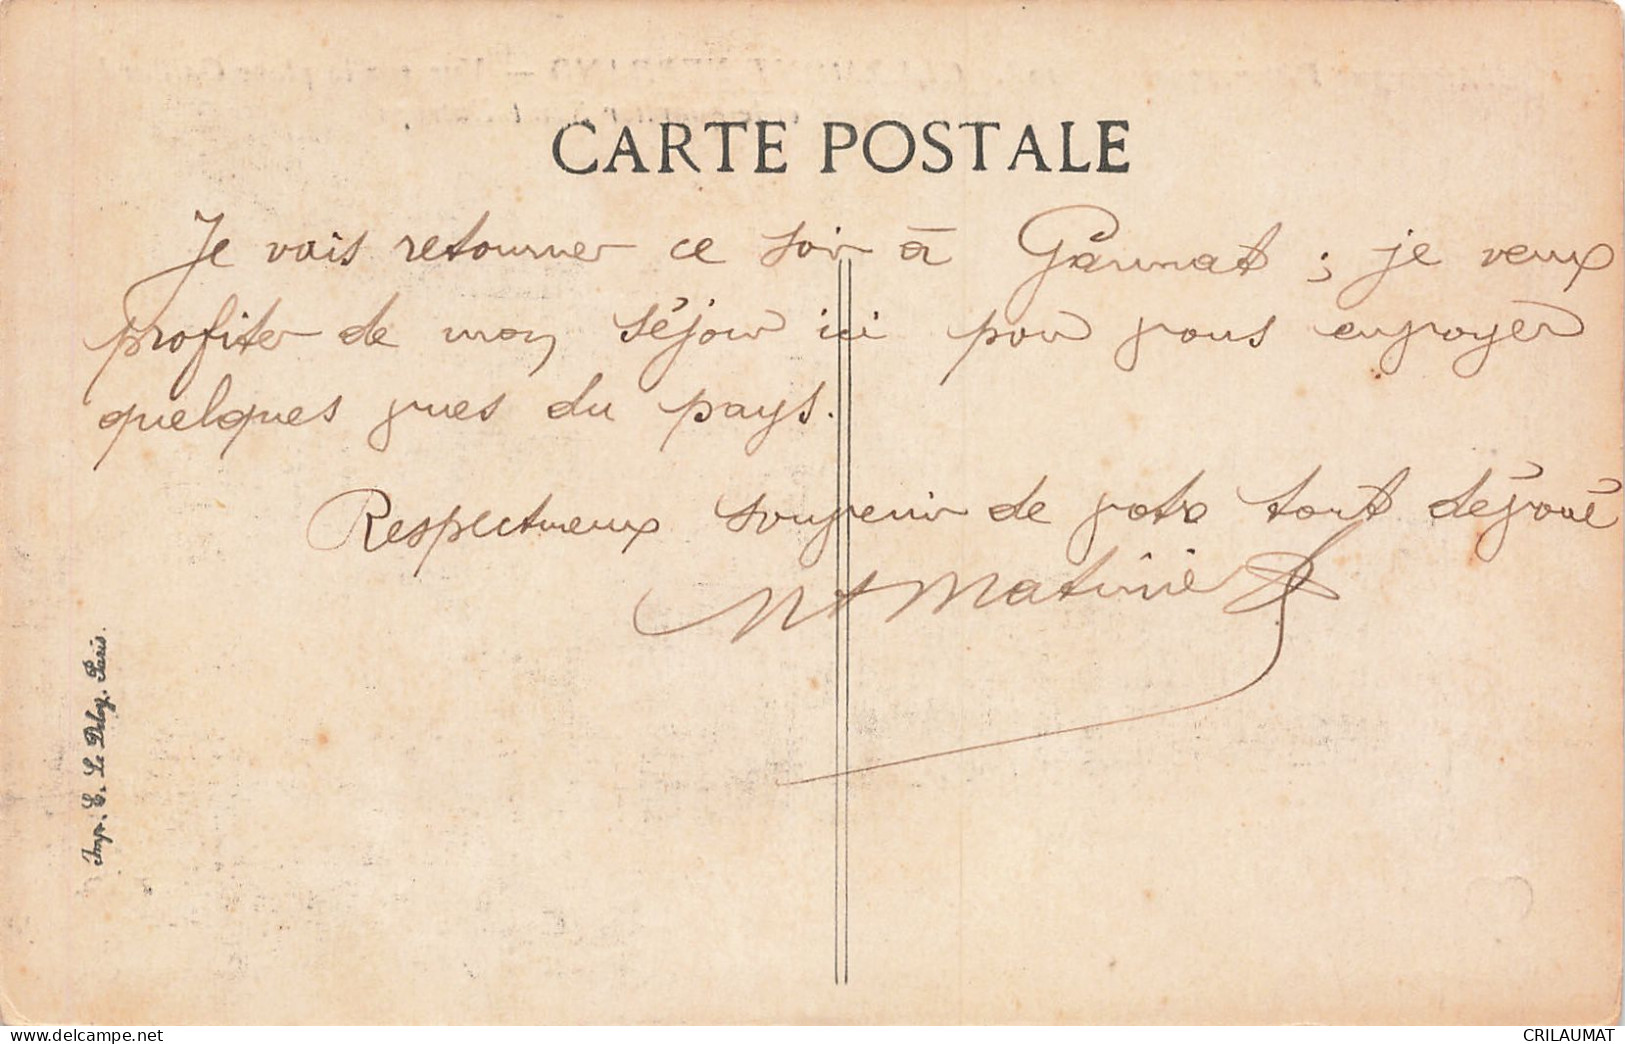 CARTE POSTALE
Je vais retourner ce soir à Gannat ; je veux
profiter de mon séjour ici pour vous envoyer
quelques vues du pays.
Respectueux souvenir de votre tout dévoué
Imp. E. Le Deley. Paris.
www.delcampe.net
CRILAUMAT